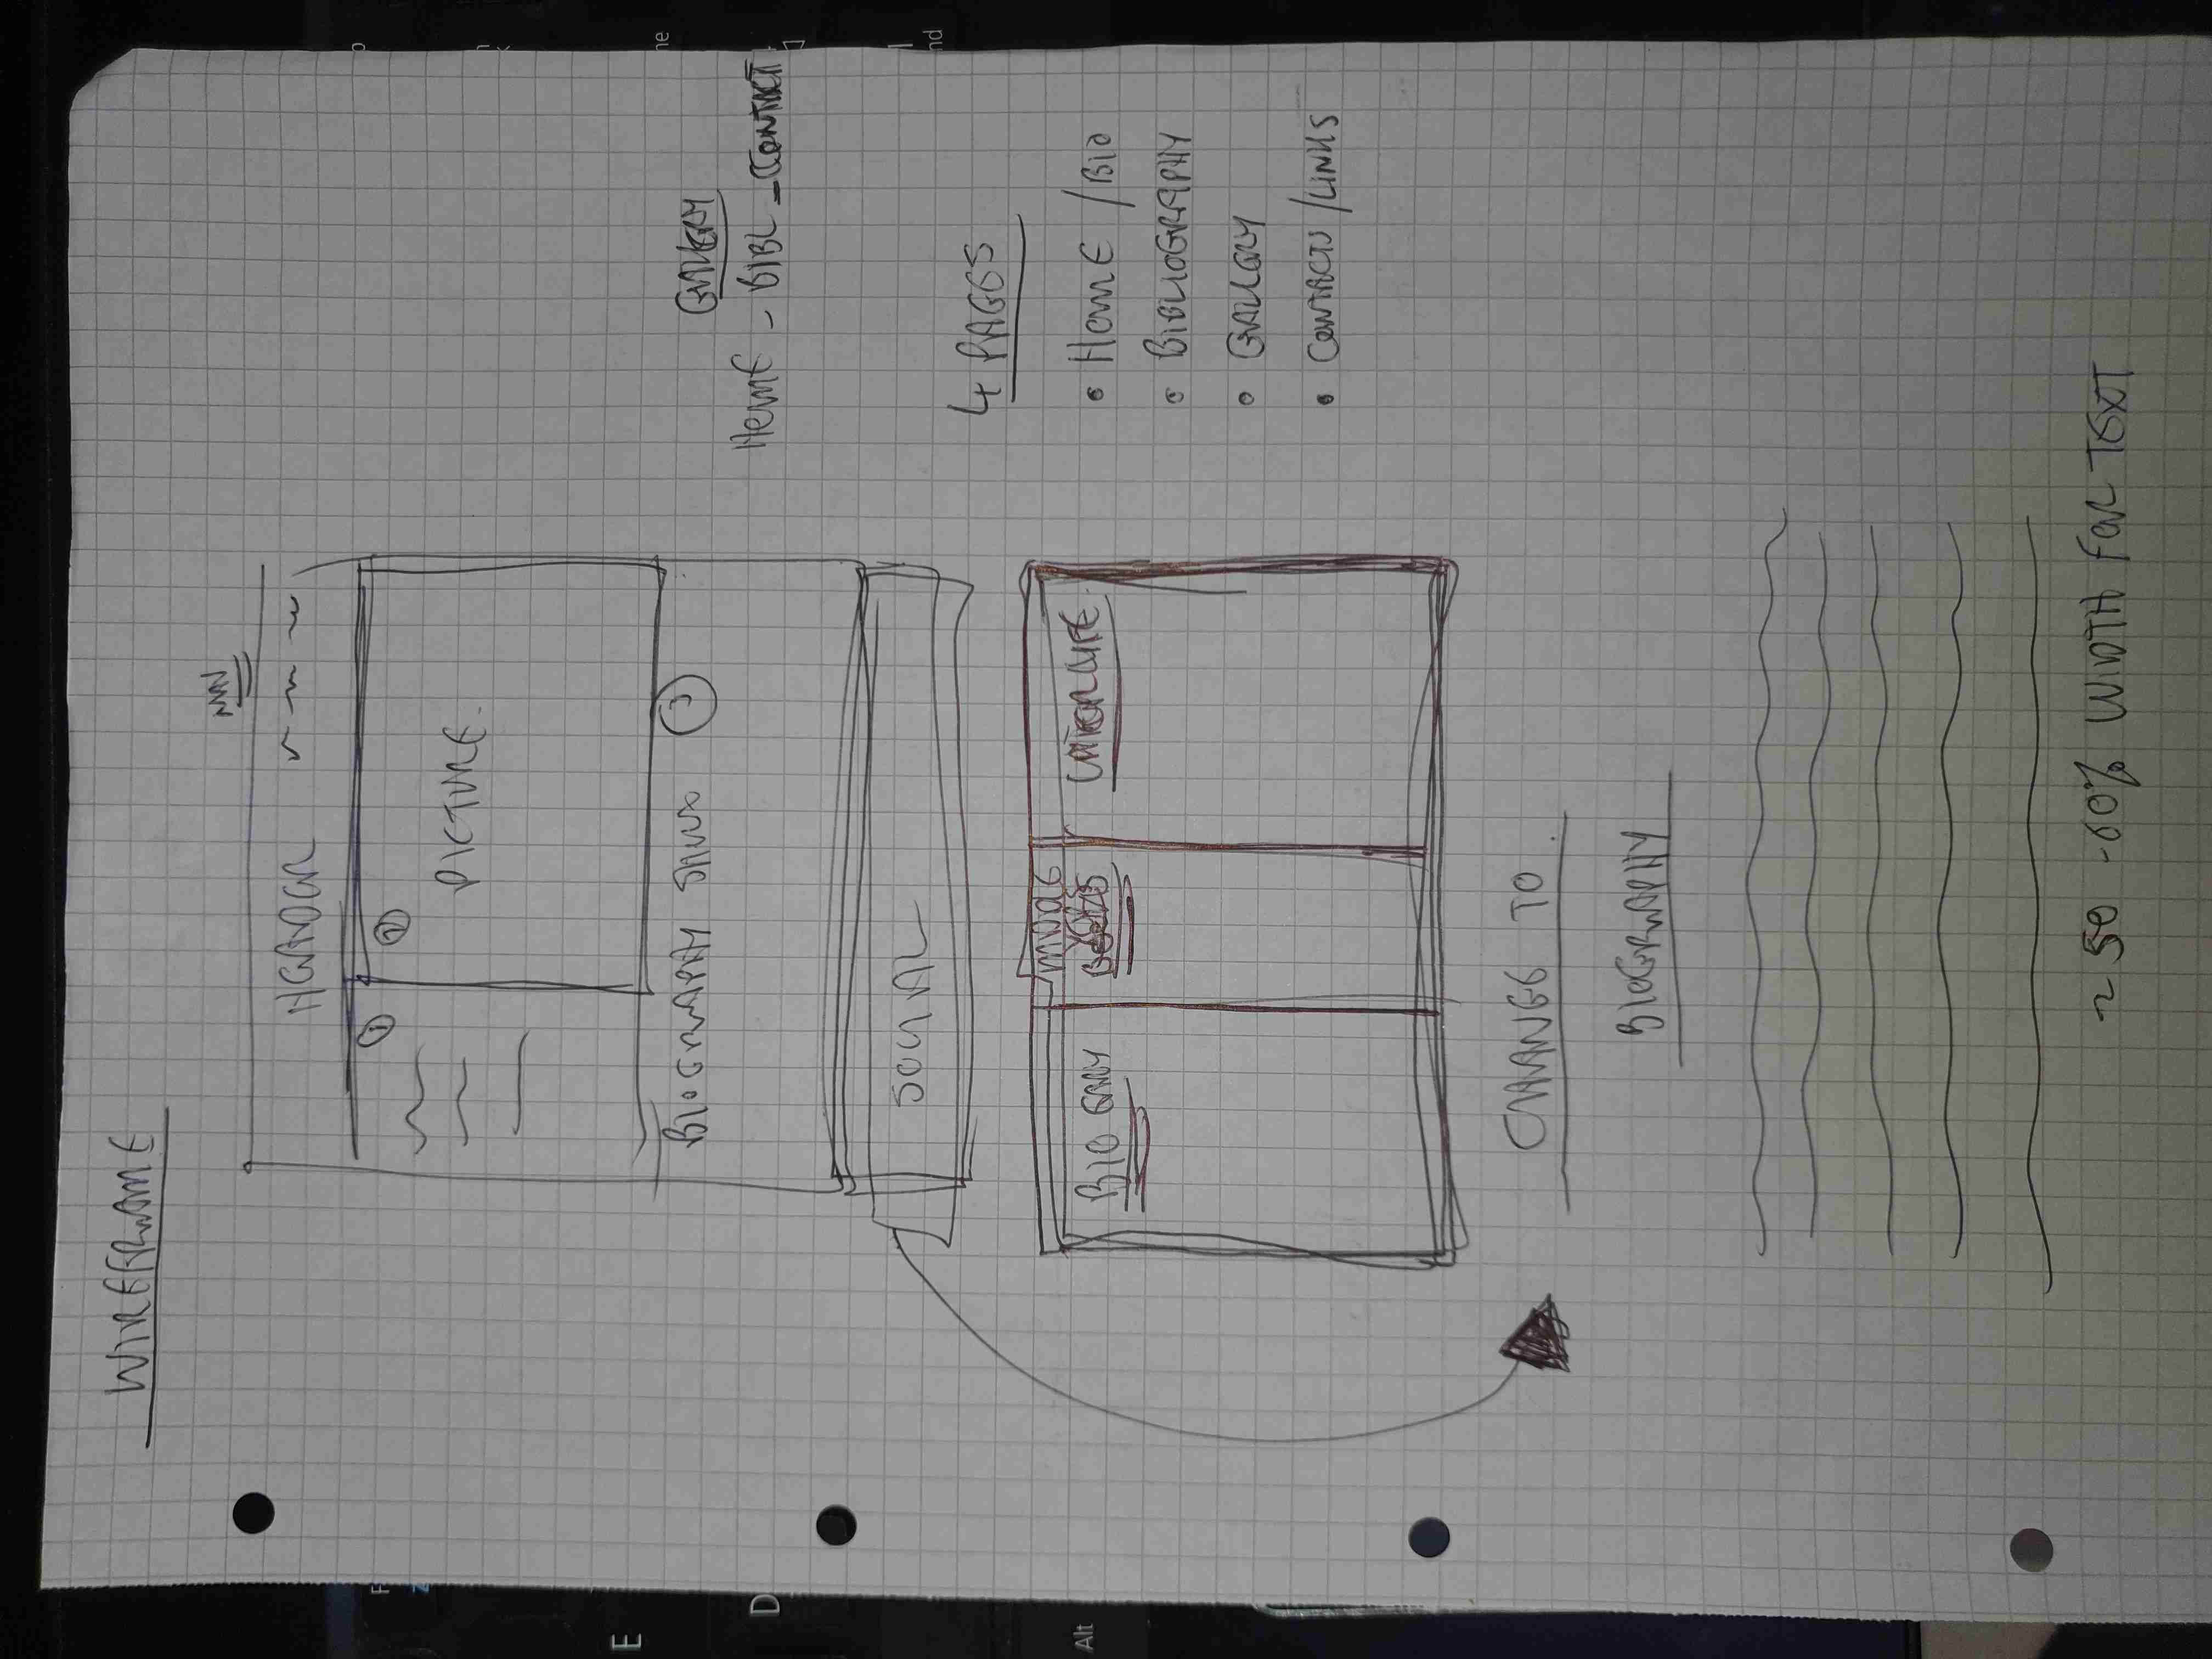 WIREFRAME
NAV
HEADER
1
2
PICTURE.
BIOGRAPHY 3
SOCIAL
GALLERY
HOME - BIBL - CONTACT
4 PAGES
HOME / BIO
BIBLIOGRAPHY
GALLERY
CONTACTS / LINKS
MIDDLE
BIO EARLY
LATER LIFE
CHANGE TO.
BIOGRAPHY
~ 50 - 60% WIDTH FOR TEXT
E
D
Alt